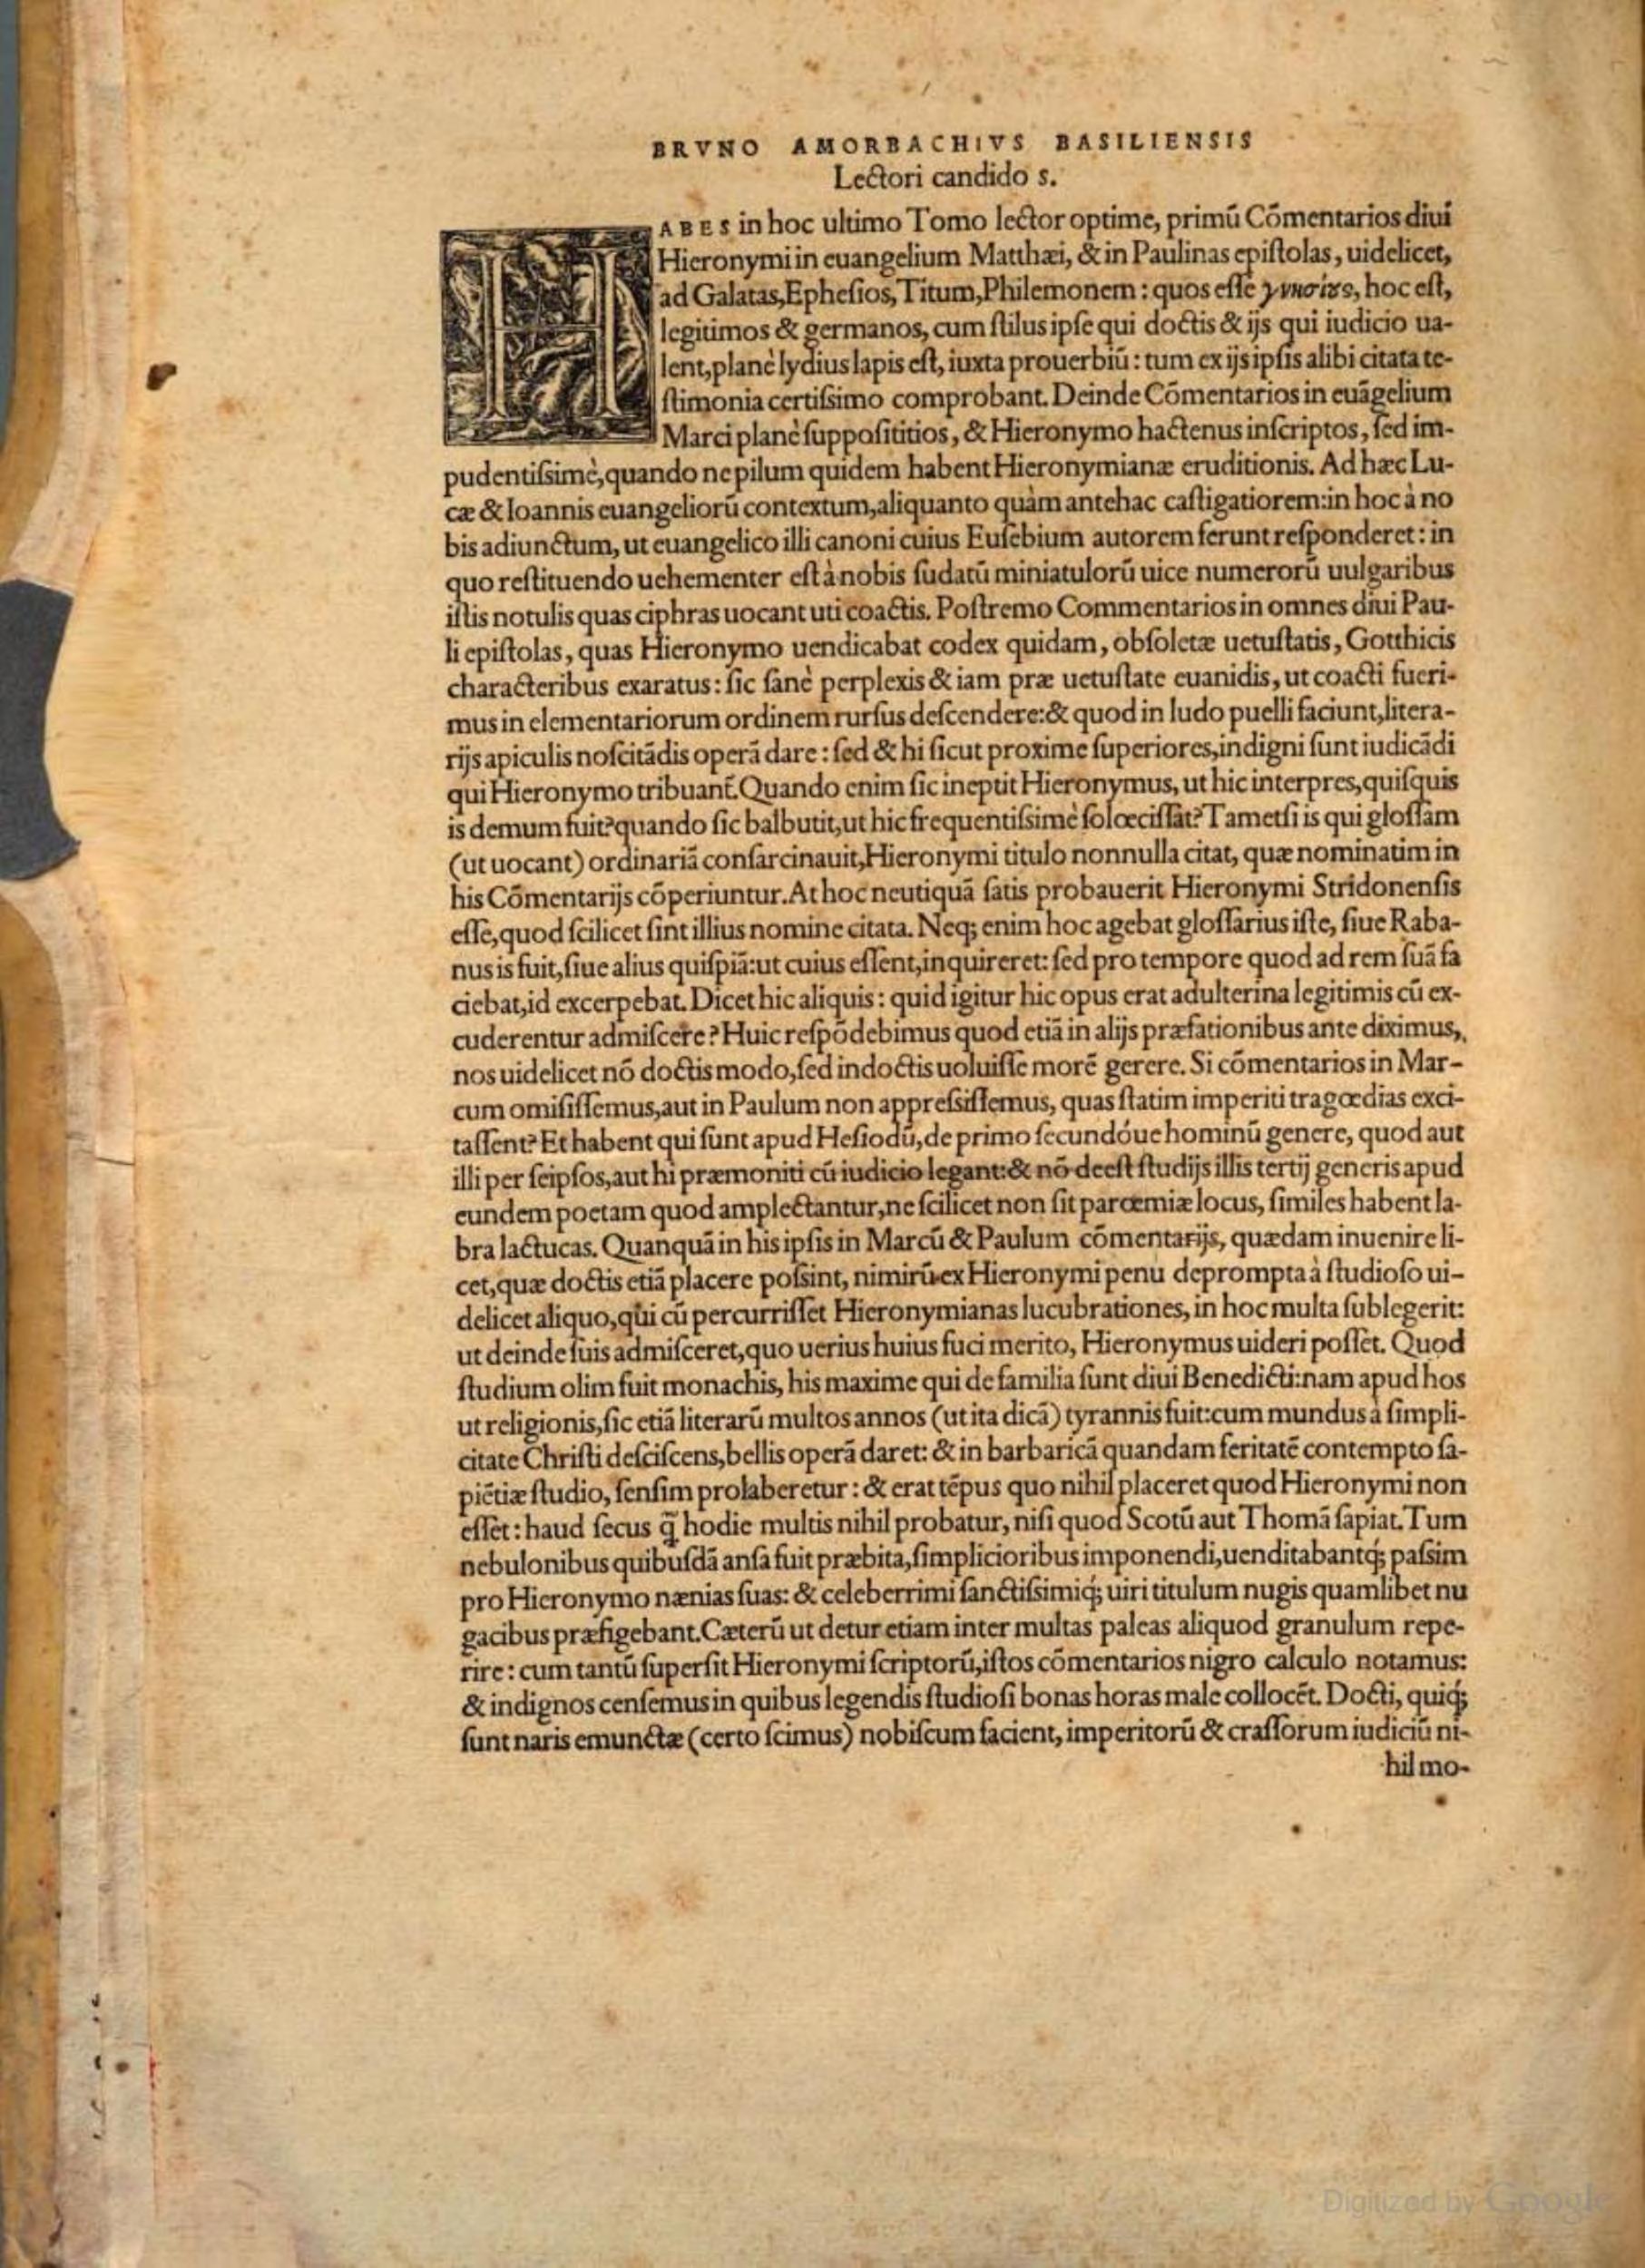 BRVNO AMORBACHIVS BASILIENSIS
Lectori candido s.
HABES in hoc ultimo Tomo lector optime, primū Cōmentarios diui
Hieronymi in euangelium Matthæi, & in Paulinas epiſtolas, uidelicet,
ad Galatas, Epheſios, Titum, Philemonem: quos eſſe γνησίους, hoc eſt,
legitimos & germanos, cum ſtilus ipſe qui doctis & ijs qui iudicio ua-
lent, planè lydius lapis eſt, iuxta prouerbiū: tum ex ijs ipſis alibi citata te-
ſtimonia certiſsimo comprobant. Deinde Cōmentarios in euāgelium
Marci planè ſuppoſititios, & Hieronymo hactenus inſcriptos, ſed im-
pudentiſsimè, quando ne pilum quidem habent Hieronymianæ eruditionis. Ad hæc Lu-
cæ & Ioannis euangeliorū contextum, aliquanto quàm antehac caſtigatiorem: in hoc à no
bis adiunctum, ut euangelico illi canoni cuius Euſebium autorem ferunt reſponderet: in
quo reſtituendo uehementer eſt à nobis ſudatū miniatulorū uice numerorū uulgaribus
iſtis notulis quas ciphras uocant uti coactis. Poſtremo Commentarios in omnes diui Pau-
li epiſtolas, quas Hieronymo uendicabat codex quidam, obſoletæ uetuſtatis, Gotthicis
characteribus exaratus: ſic ſanè perplexis & iam præ uetuſtate euanidis, ut coacti fueri-
mus in elementariorum ordinem rurſus deſcendere: & quod in ludo puelli faciunt, litera-
rijs apiculis noſcitādis operā dare: ſed & hi ſicut proxime ſuperiores, indigni ſunt iudicādi
qui Hieronymo tribuant̃. Quando enim ſic ineptit Hieronymus, ut hic interpres, quiſquis
is demum fuit? quando ſic balbutit, ut hic frequentiſsimè ſolœciſſat? Tametſi is qui gloſſam
(ut uocant) ordinariā conſarcinauit, Hieronymi titulo nonnulla citat, quæ nominatim in
his Cōmentarijs cōperiuntur. At hoc neutiquā ſatis probauerit Hieronymi Stridonenſis
eſſe, quod ſcilicet ſint illius nomine citata. Neq; enim hoc agebat gloſſarius iſte, ſiue Raba-
nus is fuit, ſiue alius quiſpiā: ut cuius eſſent, inquireret: ſed pro tempore quod ad rem ſuā fa
ciebat, id excerpebat. Dicet hic aliquis: quid igitur hic opus erat adulterina legitimis cū ex-
cuderentur admiſcere? Huic reſpōdebimus quod etiā in alijs præfationibus ante diximus,
nos uidelicet nō doctis modo, ſed indoctis uoluiſſe morē gerere. Si cōmentarios in Mar-
cum omiſiſſemus, aut in Paulum non appreſsiſſemus, quas ſtatim imperiti tragœdias exci-
taſſent? Et habent qui ſunt apud Heſiodū, de primo ſecundóue hominū genere, quod aut
illi per ſeipſos, aut hi præmoniti cū iudicio legant: & nō deeſt ſtudijs illis tertij generis apud
eundem poetam quod amplectantur, ne ſcilicet non ſit parœmiæ locus, ſimiles habent la-
bra lactucas. Quanquā in his ipſis in Marcū & Paulum cōmentarijs, quædam inuenire li-
cet, quæ doctis etiā placere poſsint, nimirū ex Hieronymi penu deprompta à ſtudioſo ui-
delicet aliquo, qui cū percurriſſet Hieronymianas lucubrationes, in hoc multa ſublegerit:
ut deinde ſuis admiſceret, quo uerius huius fuci merito, Hieronymus uideri poſſet. Quod
ſtudium olim fuit monachis, his maxime qui de familia ſunt diui Benedicti: nam apud hos
ut religionis, ſic etiā literarū multos annos (ut ita dicā) tyrannis fuit: cum mundus à ſimpli-
citate Chriſti deſciſcens, bellis operā daret: & in barbaricā quandam feritatē contempto ſa-
piētiæ ſtudio, ſenſim prolaberetur: & erat tēpus quo nihil placeret quod Hieronymi non
eſſet: haud ſecus q̃ hodie multis nihil probatur, niſi quod Scotū aut Thomā ſapiat. Tum
nebulonibus quibuſdā anſa fuit præbita, ſimplicioribus imponendi, uenditabantq́; paſsim
pro Hieronymo nænias ſuas: & celeberrimi ſanctiſsimiq́; uiri titulum nugis quamlibet nu
gacibus præfigebant. Cæterū ut detur etiam inter multas paleas aliquod granulum repe-
rire: cum tantū ſuperſit Hieronymi ſcriptorū, iſtos cōmentarios nigro calculo notamus:
& indignos cenſemus in quibus legendis ſtudioſi bonas horas male collocēt. Docti, quiq́;
ſunt naris emunctæ (certo ſcimus) nobiſcum facient, imperitorū & craſſorum iudiciū ni-
hil mo-
Digitized by Google